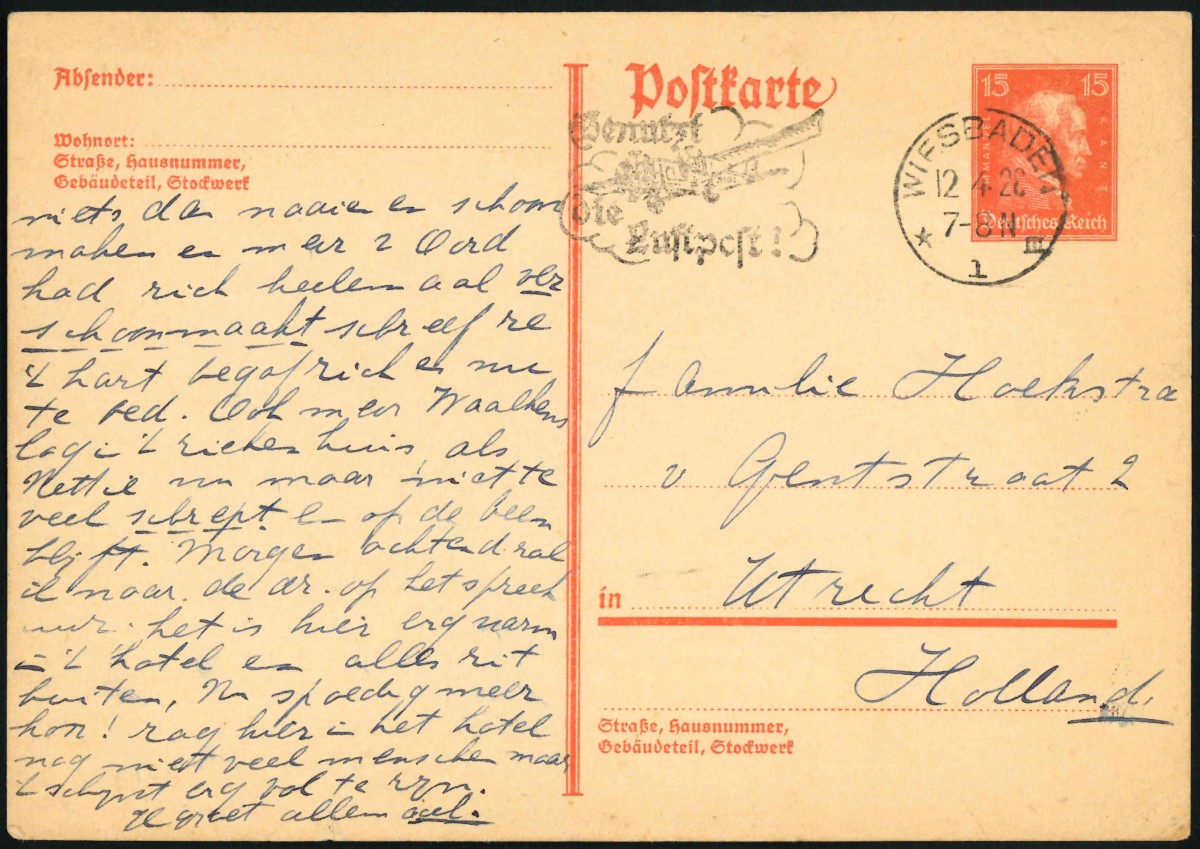 Absender:
Wohnort:
Straße, Hausnummer,
Gebäudeteil, Stockwerk
niets dan naaien en schoon
maken en mevr 2 Oord
had zich heelemaal ver
schoonmaakt schreef ze
't hart begaf zich en nu
te bed. Ook mevr Waalkens
lag in 't ziekenhuis, als
Nettie nu maar niet te
veel schrept en op de been
blijft. Morgen ochtend zal
ik naar de dr. op het spreek
uur. het is hier erg warm
in 't hotel en alles zit
buiten, Nu spoedig meer
hoor! zag hier in het hotel
nog niet veel menschen maar
't schijnt erg vol te zijn.
gegroet allemaal.
Postkarte
Benutzt
die
Luftpost!
15 15
IMMANUEL KANT
Deutsches Reich
WIESBADEN
12 4 28
7-8 N
* 1
familie Hoekstra
v Gentstraat 2
in Utrecht
Holland.
Straße, Hausnummer,
Gebäudeteil, Stockwerk